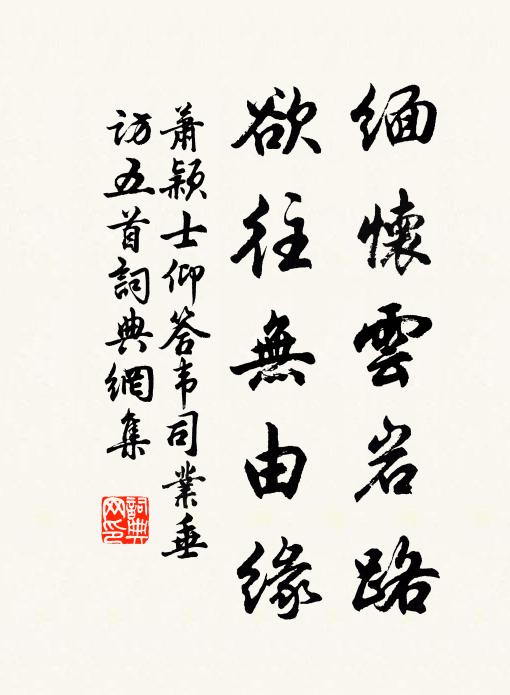 緬懷雲岩路
欲往無由緣
蕭穎士仰答韦司業垂
訪五首詞典網集
詞典
网印